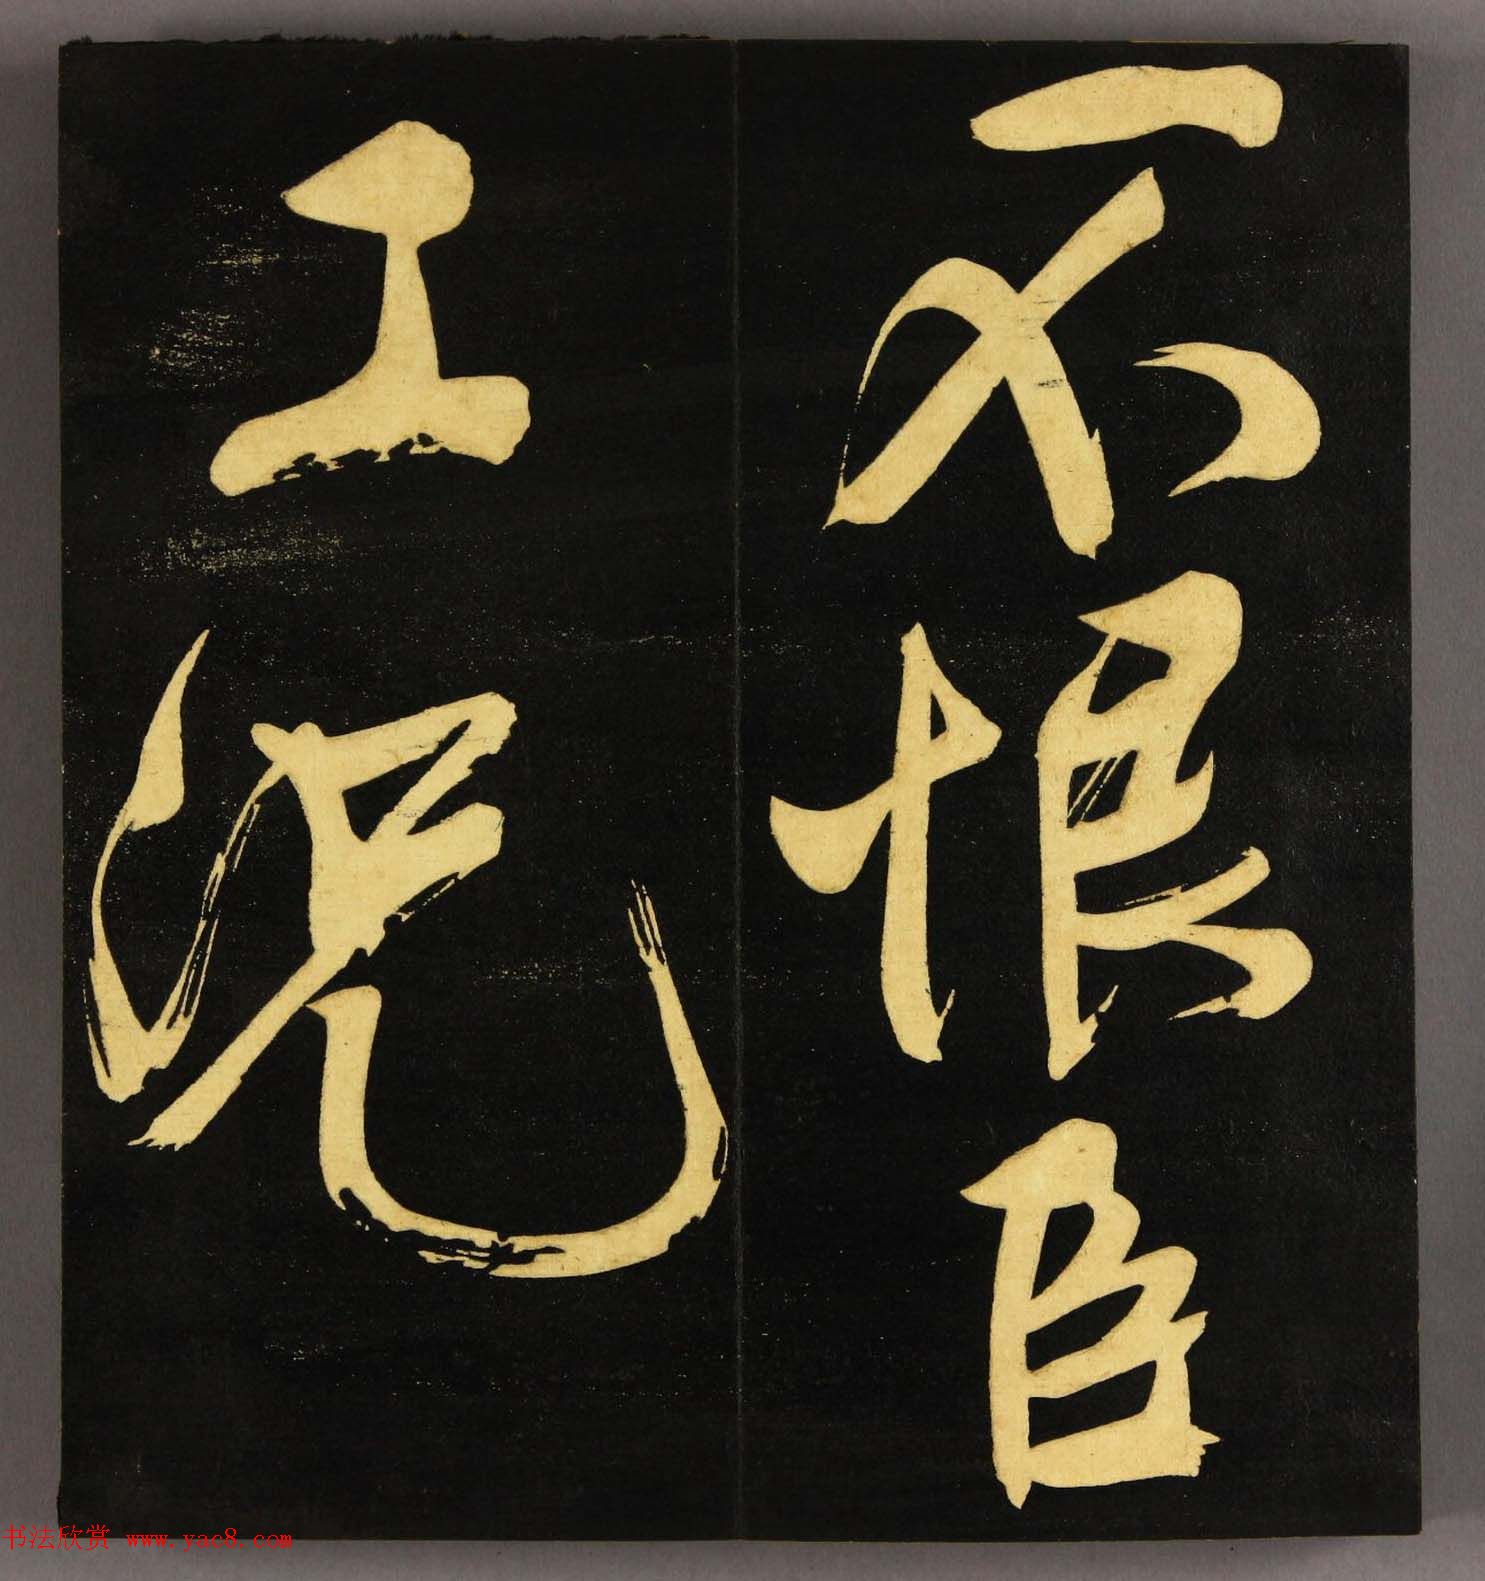 不恨臣
工况
书法欣赏 www.yac8.com